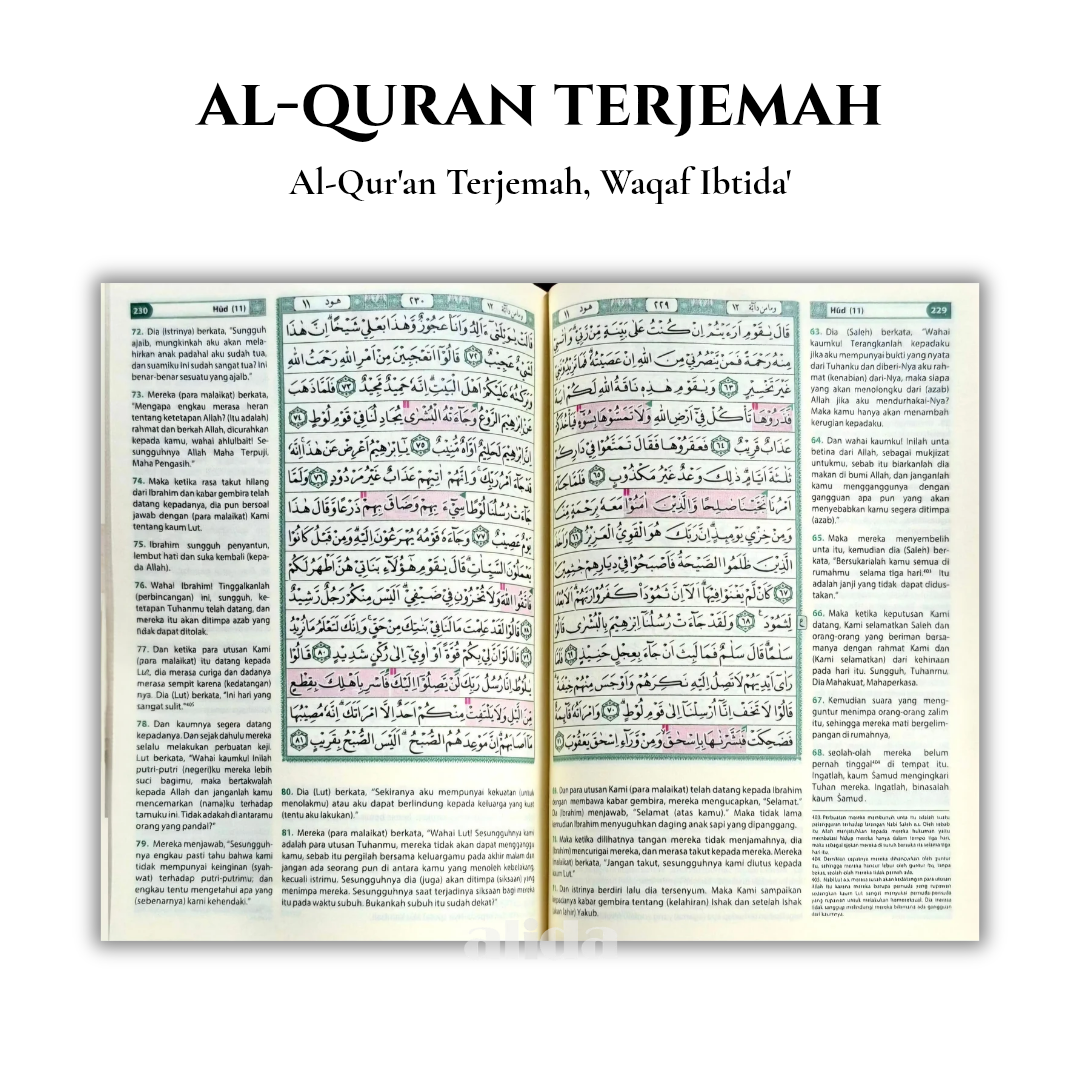 AL-QURAN TERJEMAH
Al-Qur'an Terjemah, Waqaf Ibtida'
Hūd (11)
229
63. Dia (Saleh) berkata, "Wahai
kaumku! Terangkanlah kepadaku
jika aku mempunyai bukti yang nyata
dari Tuhanku dan diberi-Nya aku rah-
mat (kenabian) dari-Nya, maka siapa
yang akan menolongku dari (azab)
Allah jika aku mendurhakai-Nya?
Maka kamu hanya akan menambah
kerugian kepadaku.
64. Dan wahai kaumku! Inilah unta
betina dari Allah, sebagai mukjizat
untukmu, sebab itu biarkanlah dia
makan di bumi Allah, dan janganlah
kamu mengganggunya dengan
gangguan apa pun yang akan
menyebabkan kamu segera ditimpa
(azab)."
65. Maka mereka menyembelih
unta itu, kemudian dia (Saleh) ber-
kata, "Bersukarialah kamu semua di
rumahmu selama tiga hari.⁴⁰³ Itu
adalah janji yang tidak dapat didus-
takan."
66. Maka ketika keputusan Kami
datang, Kami selamatkan Saleh dan
orang-orang yang beriman bersa-
manya dengan rahmat Kami dan
(Kami selamatkan) dari kehinaan
pada hari itu. Sungguh, Tuhanmu,
Dia Mahakuat, Mahaperkasa.
67. Kemudian suara yang meng-
guntur menimpa orang-orang zalim
itu, sehingga mereka mati bergelim-
pangan di rumahnya,
68. seolah-olah mereka belum
pernah tinggal⁴⁰⁴ di tempat itu.
Ingatlah, kaum Samud mengingkari
Tuhan mereka. Ingatlah, binasalah
kaum Samud.
وما من دآبة ١٢
٢٢٩
هود ١١
قَالَ يٰقَوْمِ اَرَءَيْتُمْ اِنْ كُنْتُ عَلٰى بَيِّنَةٍ مِّنْ رَّبِّيْ وَاٰتٰىنِيْ
مِنْهُ رَحْمَةً فَمَنْ يَّنْصُرُنِيْ مِنَ اللّٰهِ اِنْ عَصَيْتُهٗ فَمَا تَزِيْدُوْنَنِيْ
غَيْرَ تَخْسِيْرٍ ٦٣ وَيٰقَوْمِ هٰذِهٖ نَاقَةُ اللّٰهِ لَكُمْ
فَذَرُوْهَا تَأْكُلْ فِيْٓ اَرْضِ اللّٰهِ وَلَا تَمَسُّوْهَا بِسُوْۤءٍ فَيَأْخُذَكُمْ
عَذَابٌ قَرِيْبٌ ٦٤ فَعَقَرُوْهَا فَقَالَ تَمَتَّعُوْا فِيْ دَارِكُمْ
ثَلٰثَةَ اَيَّامٍ ذٰلِكَ وَعْدٌ غَيْرُ مَكْذُوْبٍ ٦٥ فَلَمَّا جَاۤءَ
اَمْرُنَا نَجَّيْنَا صٰلِحًا وَّالَّذِيْنَ اٰمَنُوْا مَعَهٗ بِرَحْمَةٍ مِّنَّا
وَمِنْ خِزْيِ يَوْمِىِٕذٍ اِنَّ رَبَّكَ هُوَ الْقَوِيُّ الْعَزِيْزُ ٦٦ وَاَخَذَ
الَّذِيْنَ ظَلَمُوا الصَّيْحَةُ فَاَصْبَحُوْا فِيْ دِيَارِهِمْ جٰثِمِيْنَ
٦٧ كَاَنْ لَّمْ يَغْنَوْا فِيْهَا اَلَآ اِنَّ ثَمُوْدَا۟ كَفَرُوْا رَبَّهُمْ اَلَا بُعْدًا
لِّثَمُوْدَ ٦٨ وَلَقَدْ جَاۤءَتْ رُسُلُنَآ اِبْرٰهِيْمَ بِالْبُشْرٰى قَالُوْا
سَلٰمًا قَالَ سَلٰمٌ فَمَا لَبِثَ اَنْ جَاۤءَ بِعِجْلٍ حَنِيْذٍ ٦٩ فَلَمَّا
رَآٰ اَيْدِيَهُمْ لَا تَصِلُ اِلَيْهِ نَكِرَهُمْ وَاَوْجَسَ مِنْهُمْ خِيْفَةً
قَالُوْا لَا تَخَفْ اِنَّآ اُرْسِلْنَآ اِلٰى قَوْمِ لُوْطٍ ٧٠ وَامْرَاَتُهٗ قَاۤىِٕمَةٌ
فَضَحِكَتْ فَبَشَّرْنٰهَا بِاِسْحٰقَ وَمِنْ وَّرَاۤءِ اِسْحٰقَ يَعْقُوْبَ ٧١
Dan para utusan Kami (para malaikat) telah datang kepada Ibrahim
dengan membawa kabar gembira, mereka mengucapkan, "Selamat."
Dia (Ibrahim) menjawab, "Selamat (atas kamu)." Maka tidak lama
kemudian Ibrahim menyuguhkan daging anak sapi yang dipanggang.
Maka ketika dilihatnya tangan mereka tidak menjamahnya, dia
(Ibrahim) mencurigai mereka, dan merasa takut kepada mereka. Mereka
(malaikat) berkata, "Jangan takut, sesungguhnya kami diutus kepada
kaum Lut."
Dan istrinya berdiri lalu dia tersenyum. Maka Kami sampaikan
kepadanya kabar gembira tentang (kelahiran) Ishak dan setelah Ishak
(akan lahir) Yakub.
230
Hūd (11)
72. Dia (istrinya) berkata, "Sungguh
ajaib, mungkinkah aku akan mela-
hirkan anak padahal aku sudah tua,
dan suamiku ini sudah sangat tua? Ini
benar-benar sesuatu yang ajaib."
73. Mereka (para malaikat) berkata,
"Mengapa engkau merasa heran
tentang ketetapan Allah? (Itu adalah)
rahmat dan berkah Allah, dicurahkan
kepada kamu, wahai ahlulbait! Se-
sungguhnya Allah Maha Terpuji,
Maha Pengasih."
74. Maka ketika rasa takut hilang
dari Ibrahim dan kabar gembira telah
datang kepadanya, dia pun bersoal
jawab dengan (para malaikat) Kami
tentang kaum Lut.
75. Ibrahim sungguh penyantun,
lembut hati dan suka kembali (kepa-
da Allah).
76. Wahai Ibrahim! Tinggalkanlah
(perbincangan) ini, sungguh, ke-
tetapan Tuhanmu telah datang, dan
mereka itu akan ditimpa azab yang
tidak dapat ditolak.
77. Dan ketika para utusan Kami
(para malaikat) itu datang kepada
Lut, dia merasa curiga dan dadanya
merasa sempit karena (kedatangan)
nya. Dia (Lut) berkata, "Ini hari yang
sangat sulit."⁴⁰⁵
78. Dan kaumnya segera datang
kepadanya. Dan sejak dahulu mereka
selalu melakukan perbuatan keji.
Lut berkata, "Wahai kaumku! Inilah
putri-putri (negeri)ku mereka lebih
suci bagimu, maka bertakwalah
kepada Allah dan janganlah kamu
mencemarkan (nama)ku terhadap
tamuku ini. Tidak adakah di antaramu
orang yang pandai?"
79. Mereka menjawab, "Sesungguh-
nya engkau pasti tahu bahwa kami
tidak mempunyai keinginan (syah-
wat) terhadap putri-putrimu; dan
engkau tentu mengetahui apa yang
(sebenarnya) kami kehendaki."
وما من دآبة ١٢
٢٣٠
هود ١١
قَالَتْ يٰوَيْلَتٰىٓ ءَاَلِدُ وَاَنَا۠ عَجُوْزٌ وَّهٰذَا بَعْلِيْ شَيْخًا اِنَّ هٰذَا
لَشَيْءٌ عَجِيْبٌ ٧٢ قَالُوْٓا اَتَعْجَبِيْنَ مِنْ اَمْرِ اللّٰهِ رَحْمَتُ اللّٰهِ
وَبَرَكٰتُهٗ عَلَيْكُمْ اَهْلَ الْبَيْتِ اِنَّهٗ حَمِيْدٌ مَّجِيْدٌ ٧٣ فَلَمَّا ذَهَبَ
عَنْ اِبْرٰهِيْمَ الرَّوْعُ وَجَاۤءَتْهُ الْبُشْرٰى يُجَادِلُنَا فِيْ قَوْمِ لُوْطٍ ٧٤
اِنَّ اِبْرٰهِيْمَ لَحَلِيْمٌ اَوَّاهٌ مُّنِيْبٌ ٧٥ يٰٓاِبْرٰهِيْمُ اَعْرِضْ عَنْ هٰذَا اِنَّهٗ
قَدْ جَاۤءَ اَمْرُ رَبِّكَ وَاِنَّهُمْ اٰتِيْهِمْ عَذَابٌ غَيْرُ مَرْدُوْدٍ ٧٦ وَلَمَّا
جَاۤءَتْ رُسُلُنَا لُوْطًا سِيْۤءَ بِهِمْ وَضَاقَ بِهِمْ ذَرْعًا وَّقَالَ هٰذَا
يَوْمٌ عَصِيْبٌ ٧٧ وَجَاۤءَهٗ قَوْمُهٗ يُهْرَعُوْنَ اِلَيْهِ وَمِنْ قَبْلُ كَانُوْا
يَعْمَلُوْنَ السَّيِّاٰتِ قَالَ يٰقَوْمِ هٰٓؤُلَاۤءِ بَنَاتِيْ هُنَّ اَطْهَرُ لَكُمْ
فَاتَّقُوا اللّٰهَ وَلَا تُخْزُوْنِ فِيْ ضَيْفِيْ اَلَيْسَ مِنْكُمْ رَجُلٌ رَّشِيْدٌ
٧٨ قَالُوْا لَقَدْ عَلِمْتَ مَا لَنَا فِيْ بَنٰتِكَ مِنْ حَقٍّ وَاِنَّكَ لَتَعْلَمُ مَا نُرِيْدُ
٧٩ قَالَ لَوْ اَنَّ لِيْ بِكُمْ قُوَّةً اَوْ اٰوِيْٓ اِلٰى رُكْنٍ شَدِيْدٍ ٨٠ قَالُوْا
يٰلُوْطُ اِنَّا رُسُلُ رَبِّكَ لَنْ يَّصِلُوْٓا اِلَيْكَ فَاَسْرِ بِاَهْلِكَ بِقِطْعٍ
مِّنَ الَّيْلِ وَلَا يَلْتَفِتْ مِنْكُمْ اَحَدٌ اِلَّا امْرَاَتَكَ اِنَّهٗ مُصِيْبُهَا
مَآ اَصَابَهُمْ اِنَّ مَوْعِدَهُمُ الصُّبْحُ اَلَيْسَ الصُّبْحُ بِقَرِيْبٍ ٨١
80. Dia (Lut) berkata, "Sekiranya aku mempunyai kekuatan (untuk
menolakmu) atau aku dapat berlindung kepada keluarga yang kuat
(tentu aku lakukan)."
81. Mereka (para malaikat) berkata, "Wahai Lut! Sesungguhnya kami
adalah para utusan Tuhanmu, mereka tidak akan dapat mengganggu
kamu, sebab itu pergilah bersama keluargamu pada akhir malam dan
jangan ada seorang pun di antara kamu yang menoleh ke belakang,
kecuali istrimu. Sesungguhnya dia (juga) akan ditimpa (siksaan) yang
menimpa mereka. Sesungguhnya saat terjadinya siksaan bagi mereka
itu pada waktu subuh. Bukankah subuh itu sudah dekat?"
alida